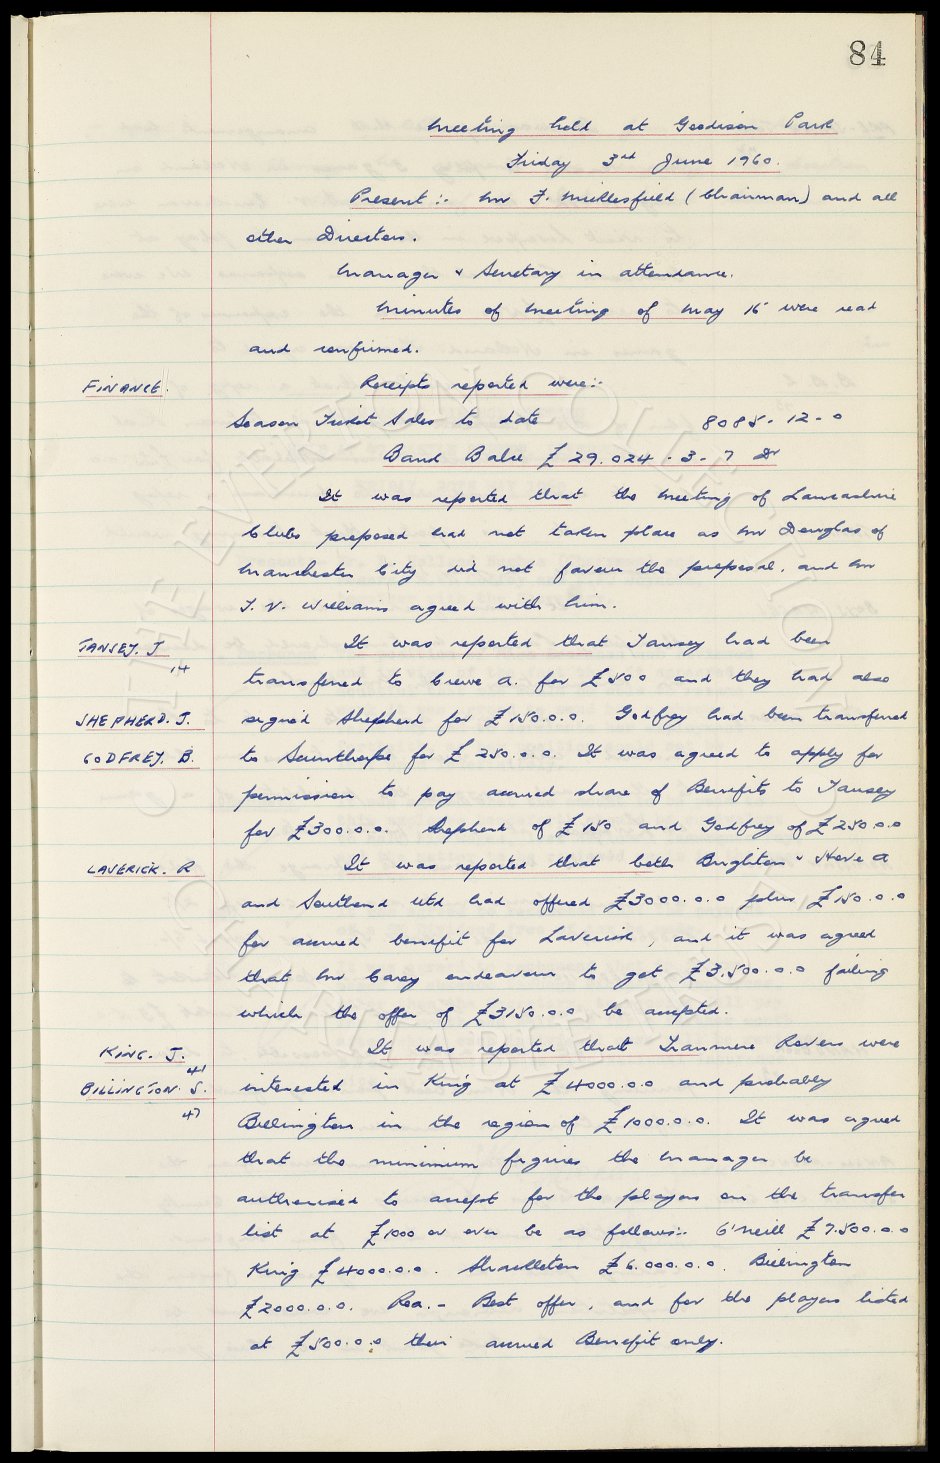 84
Meeting held at Goodison Park
Friday 3rd June 1960.
Present :- Mr F. Micklesfield (Chairman) and all
other Directors.
Manager & Secretary in attendance.
Minutes of Meeting of May 16 were read
and confirmed.
FINANCE. Receipts reported were:-
Season Ticket Sales to date 8085-12-0
Bank Balce £29.024-3-7 Dr
It was reported that the meeting of Lancashire
Clubs proposed had not taken place as Mr Douglas of
Manchester City did not favour the proposal, and Mr
T. V. Williams agreed with him.
TANSEY. J It was reported that Tansey had been
14 transferred to Crewe A. for £500 and they had also
SHEPHERD. J. signed Shepherd for £150.0.0. Godfrey had been transferred
GODFREY. B. to Scunthorpe for £250.0.0. It was agreed to apply for
permission to pay accrued share of Benefits to Tansey
for £300.0.0. Shepherd of £150 and Godfrey of £250.0.0
LAVERICK. R It was reported that both Brighton & Hove A
and Southend Utd had offered £3000.0.0 plus £150.0.0
for accrued benefit for Laverick, and it was agreed
that Mr Carey endeavour to get £3.500.0.0 failing
which the offer of £3150.0.0 be accepted.
KING. J. It was reported that Tranmere Rovers were
41
BILLINGTON. S. interested in King at £4000.0.0 and probably
47 Billington in the region of £1000.0.0. It was agreed
that the minimum figures the Manager be
authorised to accept for the players on the transfer
list at £1000 or over be as follows:- O'Neill £7.500.0.0
King £4000.0.0. Shackleton £6.000.0.0. Billington
£2000.0.0. Rea.- Best offer, and for the players listed
at £500.0.0 their accrued Benefit only.